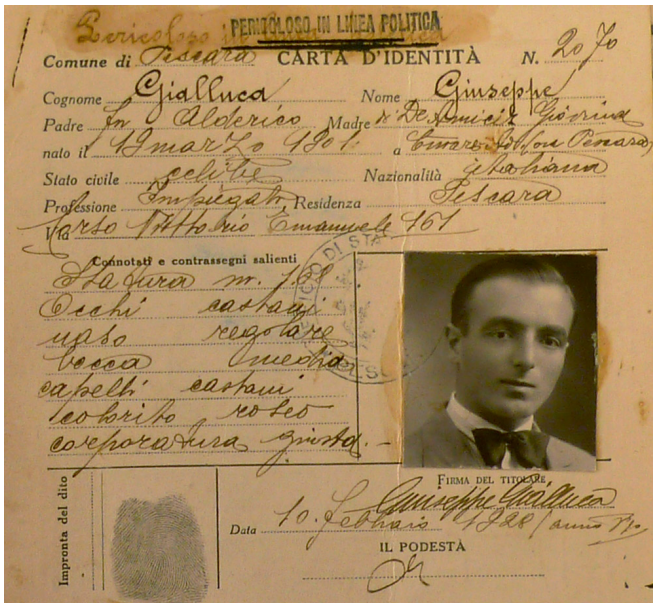 Pericoloso in linea politica
PERICOLOSO IN LINEA POLITICA
Comune di Pescara CARTA D'IDENTITÀ N. 2070
Cognome Gialluca Nome Giuseppe
Padre fu Alderico Madre di De Amicis Giovina
nato il 19 marzo 1901 a Pescara
Stato civile celibe Nazionalità italiana
Professione Impiegato Residenza Pescara
Via Corso Vittorio Emanuele 161
Connotati e contrassegni salienti
Statura m. 1,68
Occhi castani
naso regolare
bocca media
capelli castani
colorito roseo
corporatura giusta.-
FIRMA DEL TITOLARE
Giuseppe Gialluca
Impronta del dito
Data 10. febbraio anno
IL PODESTÀ